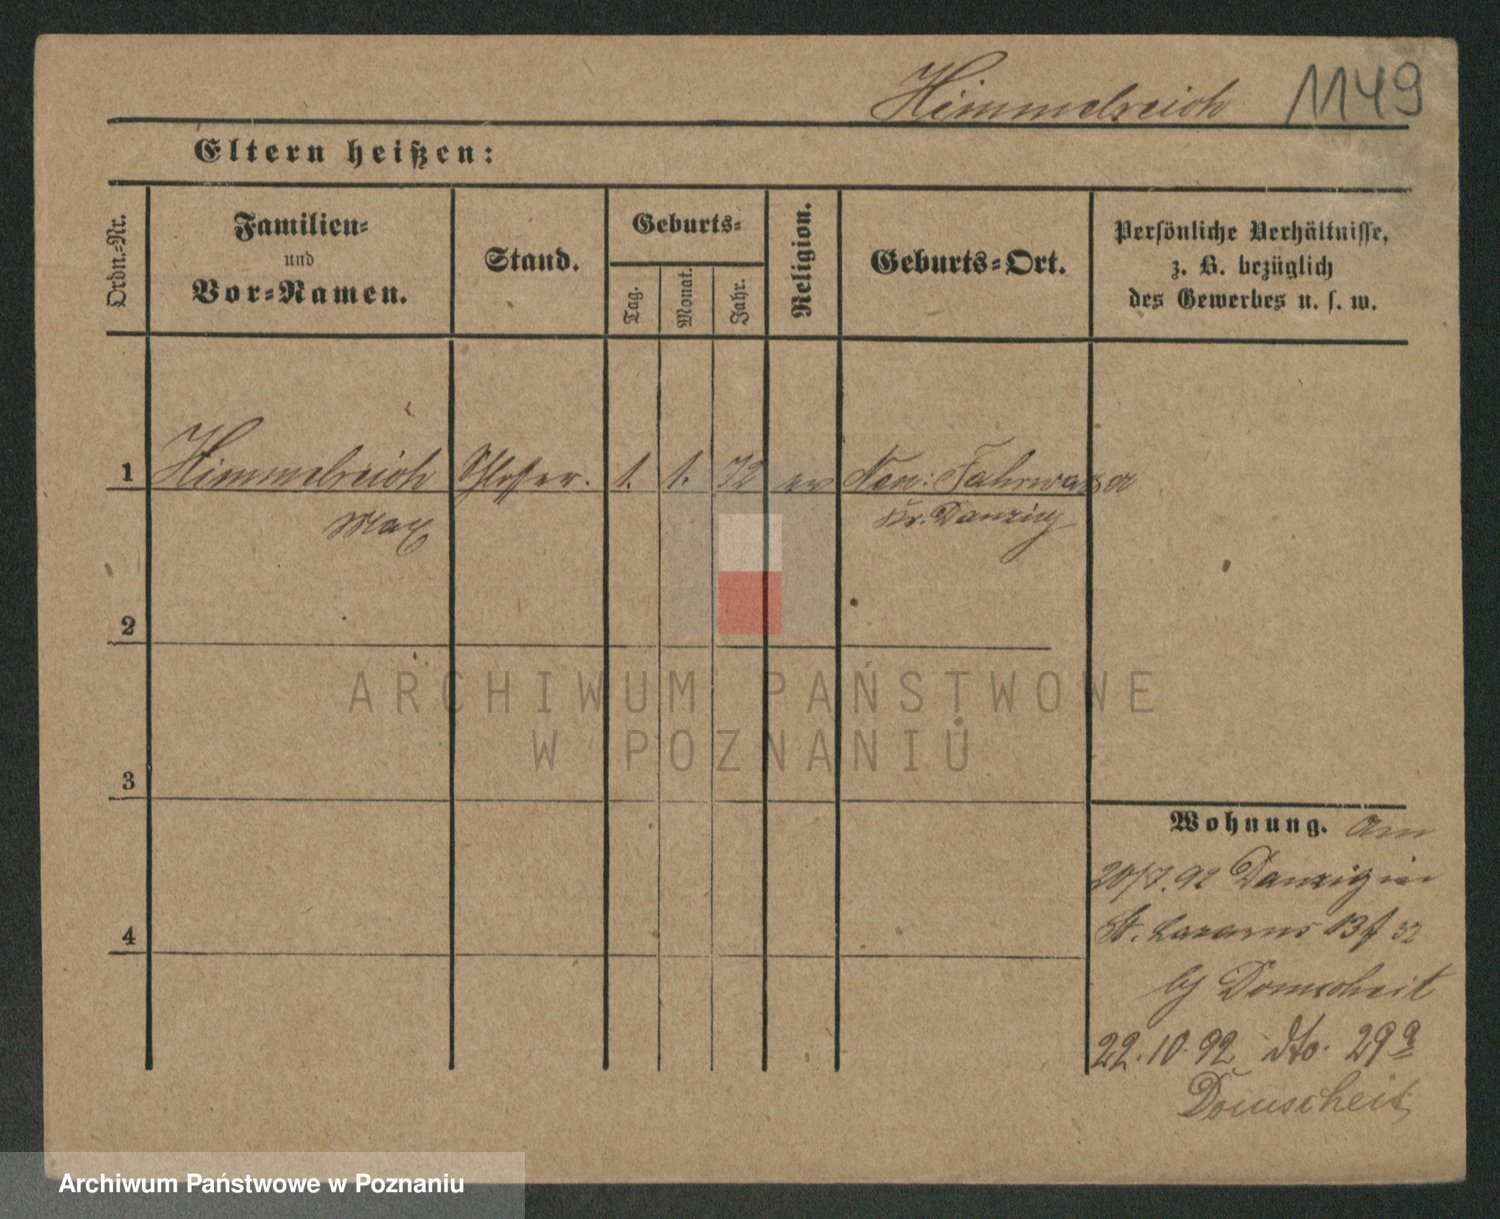 Himmelreich 1149
Eltern heißen:
Ordn.-Nr.
Familien-
und
Vor-Namen.
Stand.
Geburts-
Tag.
Monat.
Jahr.
Religion.
Geburts-Ort.
Persönliche Verhältnisse,
z. B. bezüglich
des Gewerbes u. s. w.
1 Himmelreich Schlosser. 1. 1. 72 ev Neu: Fahrwasser
Max Kr. Danzig
2
ARCHIWUM PAŃSTWOWE
W POZNANIU
3
Wohnung. am
20/7. 92 Danzig in
St. Lazarus 13 f 32
4
bj Domscheit
22. 10. 92 dto. 29a
Domscheit
Archiwum Państwowe w Poznaniu